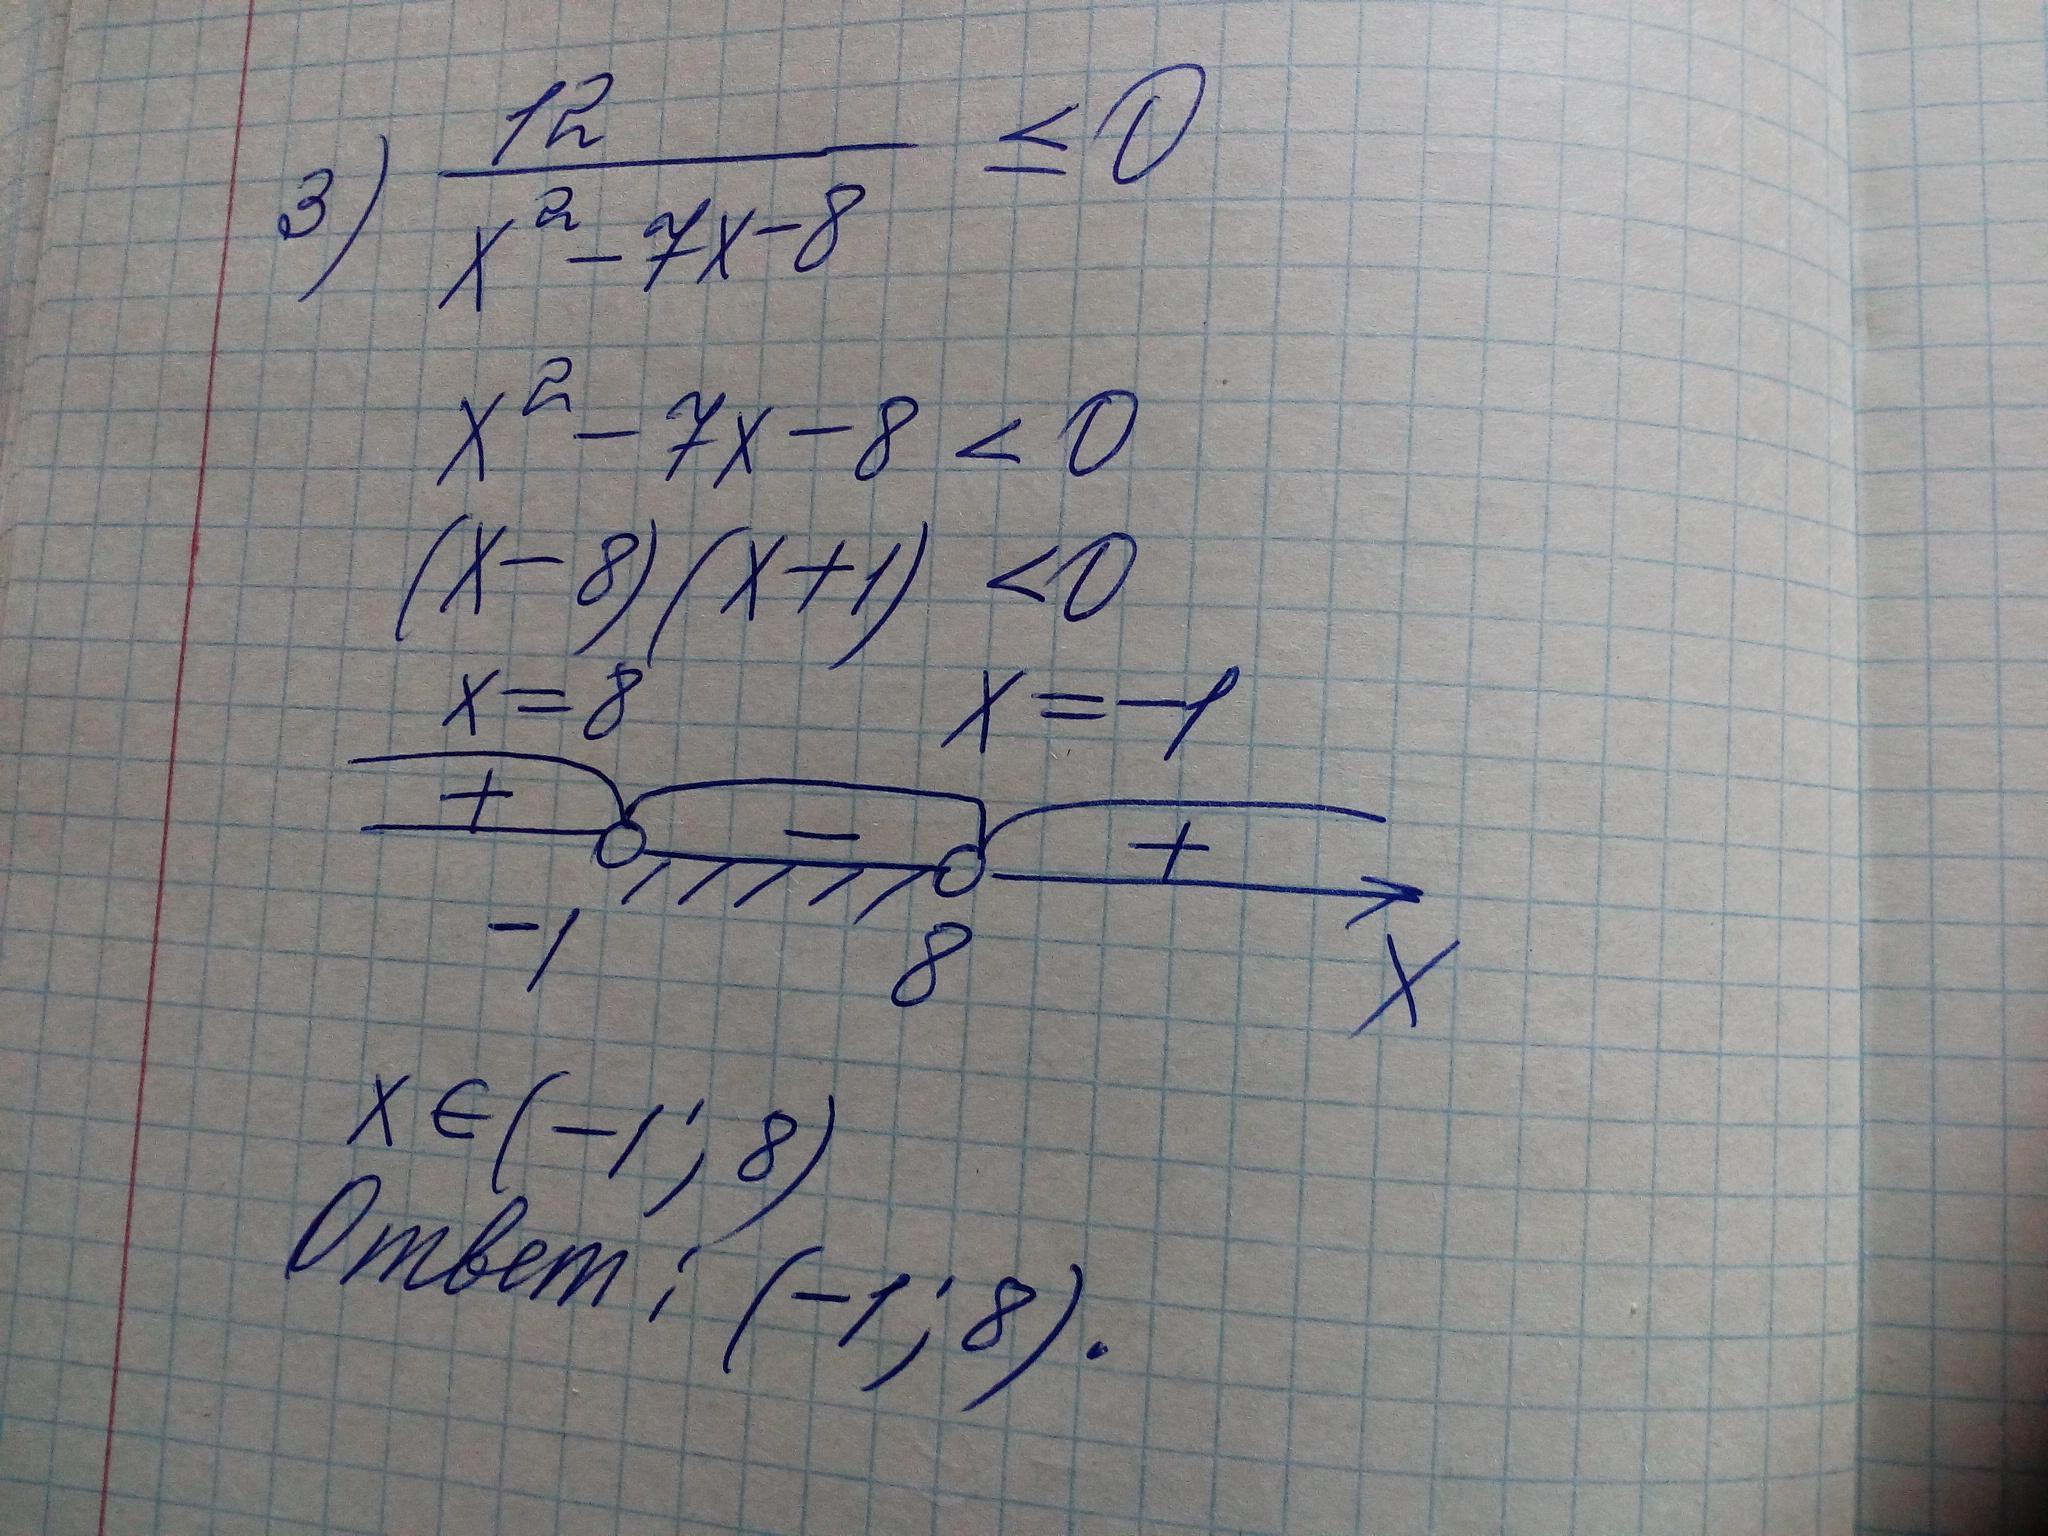 3) 12 / x² - 7x - 8 ≤ 0
x² - 7x - 8 < 0
(x - 8)(x + 1) < 0
x = 8 x = -1
+ - +
-1 8 x
x ∈ (-1; 8)
Ответ: (-1; 8).